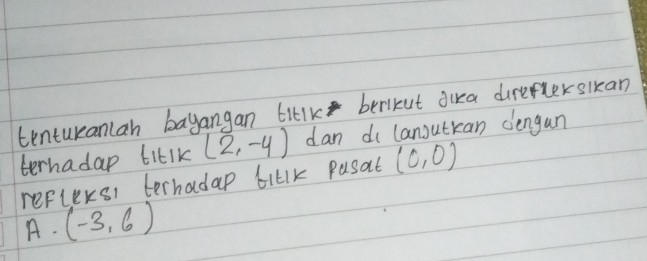 tentukanlah bayangan titik berikut jika direfleksikan
terhadap titik (2,-4) dan di lanjutkan dengan
refleksi terhadap titik pusat (0,0)
A. (-3,6)